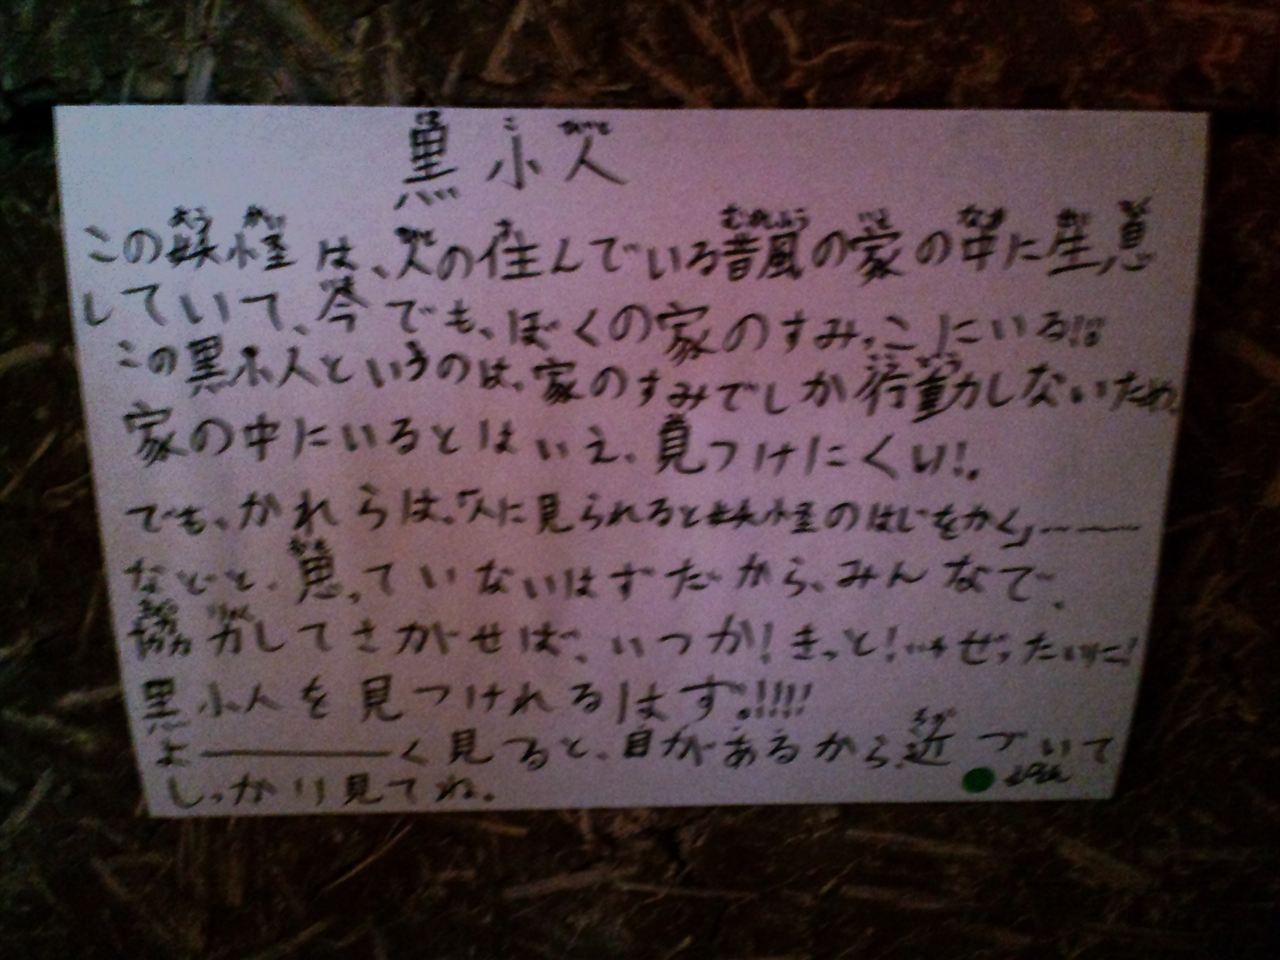 黒小人
この妖怪は、人の住んでいる昔風の家の中に生息
していて、今でも、ぼくの家のすみっこにいる!!
この黒小人というのは、家のすみでしか行動しないため、
家の中にいるとはいえ、見つけにくい!。
でも、かれらは、「人に見られると妖怪のはじをかく」――
などと、思っていないはずだから、みんなで、
協力してさがせば、いつか!きっと!いやぜったいに!
黒小人を見つけれるはず!!!!
よ―――く見ると、目があるから、近づいて
しっかり見てね。